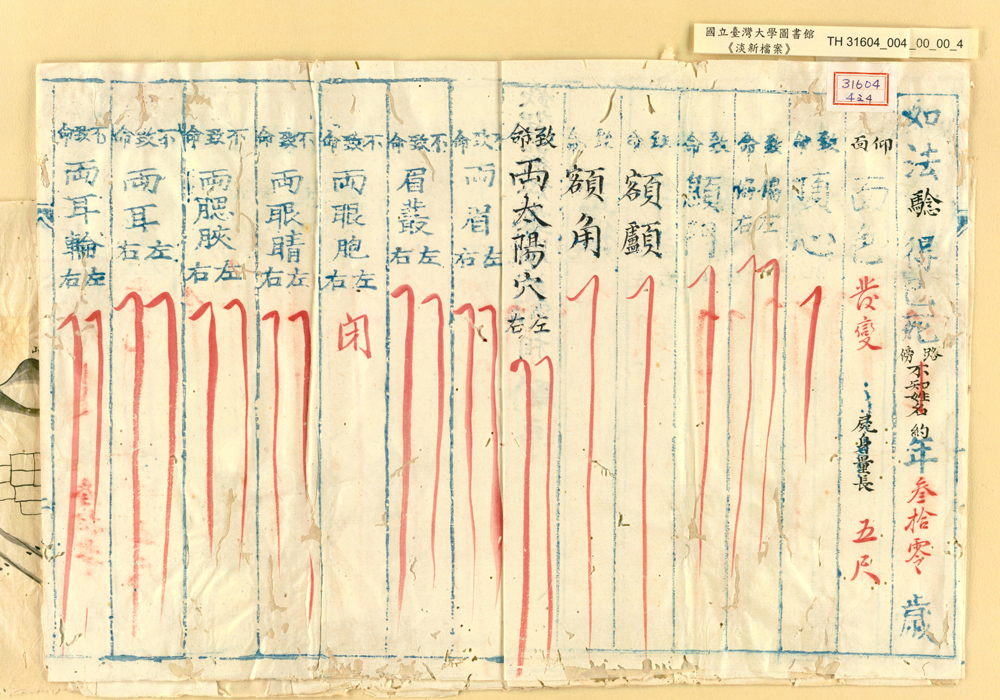 國立臺灣大學圖書館
《淡新檔案》
TH 31604_004_00_00_4
31604
424
如法驗得已死路傍不知姓名約年叁拾零歲
仰面面色發變屍身量長五尺
致命頂心
致命偏左偏右
致命顖門
致命額顱
致命額角
致命両太陽穴左右
不致命両眉左右
不致命眉叢左右
不致命両眼胞左右閉
不致命両眼睛左右
不致命両腮脥左右
不致命両耳左右
不致命両耳輪左右